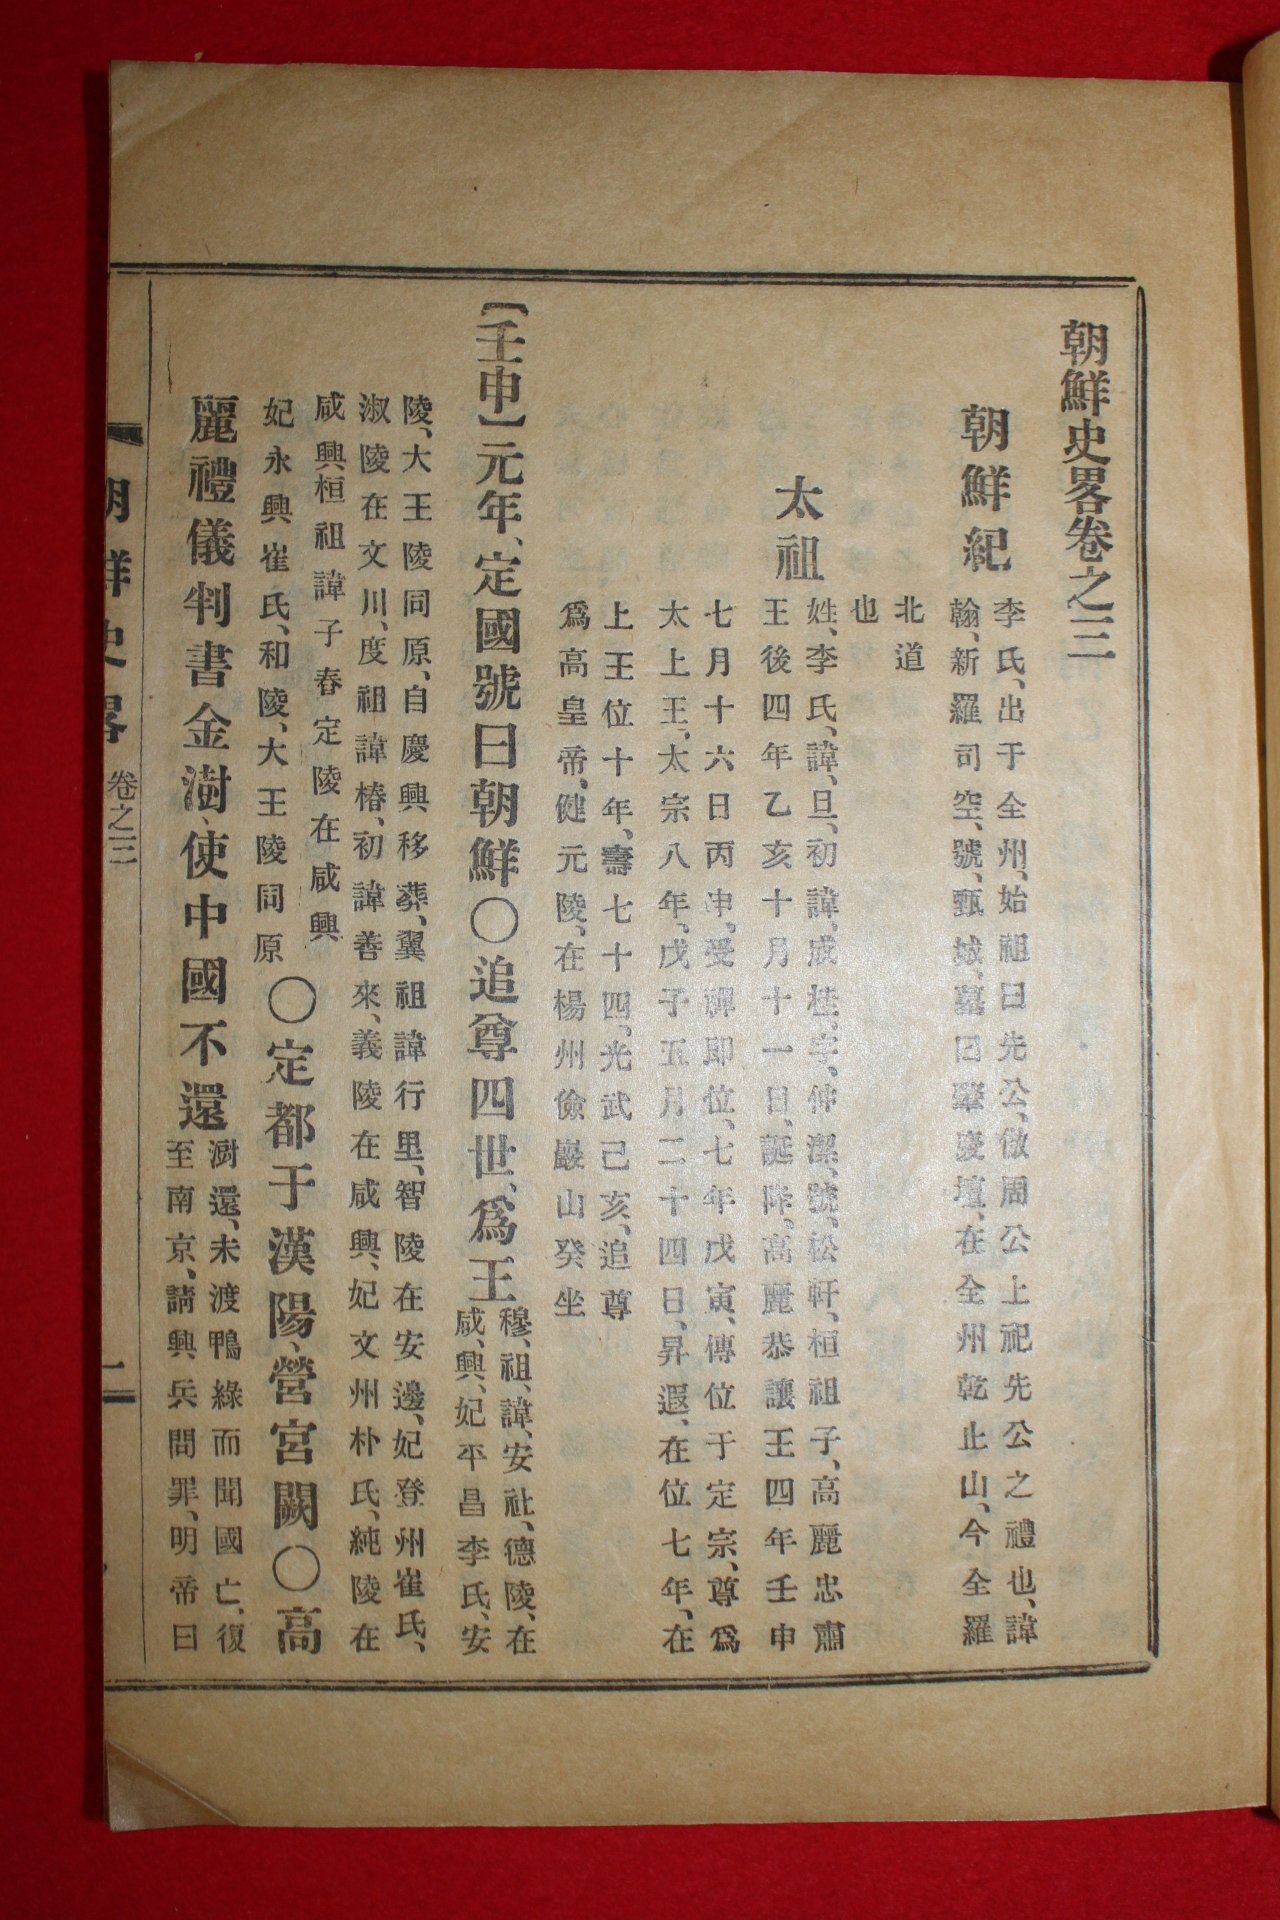 朝鮮史畧卷之三
朝鮮紀
李氏、出于全州、始祖曰先公、倣周公上祀先公之禮也、諱
翰、新羅司空、號、甄城、墓曰肇慶壇、在全州乾止山、今全羅
北道
也
太祖
姓、李氏、諱、旦、初諱、成桂、字、仲潔、號、松軒、桓祖子、高麗忠肅
王後四年乙亥十月十一日、誕降、高麗恭讓王四年壬申
七月十六日丙申、受禪卽位、七年戊寅、傳位于定宗、尊爲
太上王、太宗八年、戊子五月二十四日、昇遐、在位七年、在
上王位十年、壽七十四、光武己亥、追尊
爲高皇帝、健元陵、在楊州儉巖山癸坐
〔壬申〕元年、定國號曰朝鮮〇追尊四世、爲王
穆、祖、諱、安社、德陵、在
咸、興、妃平昌李氏、安
陵、大王陵同原、自慶興移葬、翼祖諱行里、智陵在安邊、妃登州崔氏、
淑陵在文川、度祖諱椿、初諱善來、義陵在咸興、妃文州朴氏、純陵在
咸興桓祖諱子春定陵在咸興
妃永興崔氏、和陵、大王陵同原
〇定都于漢陽、營宮闕〇高
麗禮儀判書金澍、使中國不還
澍還、未渡鴨綠而聞國亡、復
至南京、請興兵問罪、明帝曰
朝鮮史畧
卷之三
一